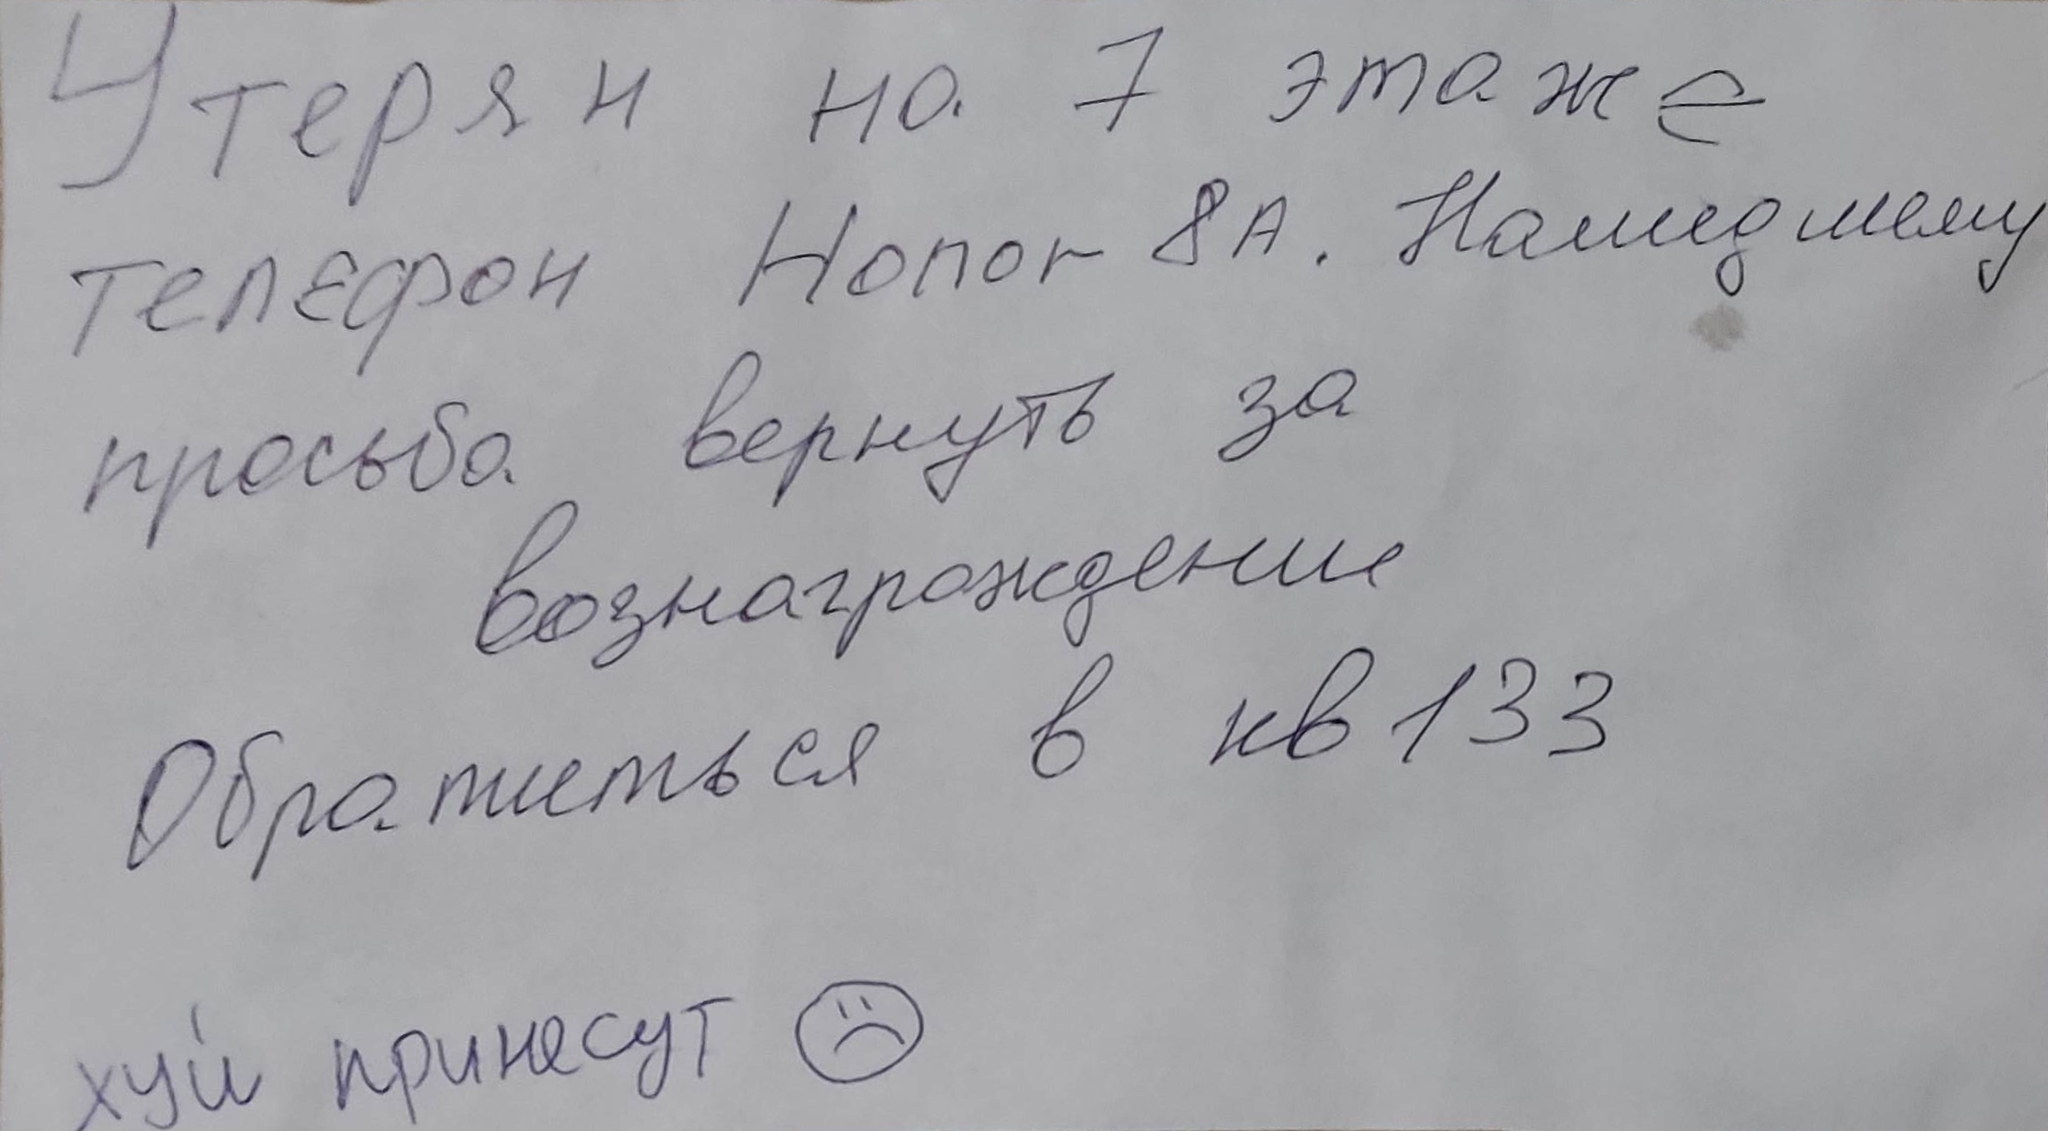 Утерян на 7 этаже
телефон Honor 8A. Нашедшему
просьба вернуть за
вознаграждение
Обратиться в кв 133
хуй принесут